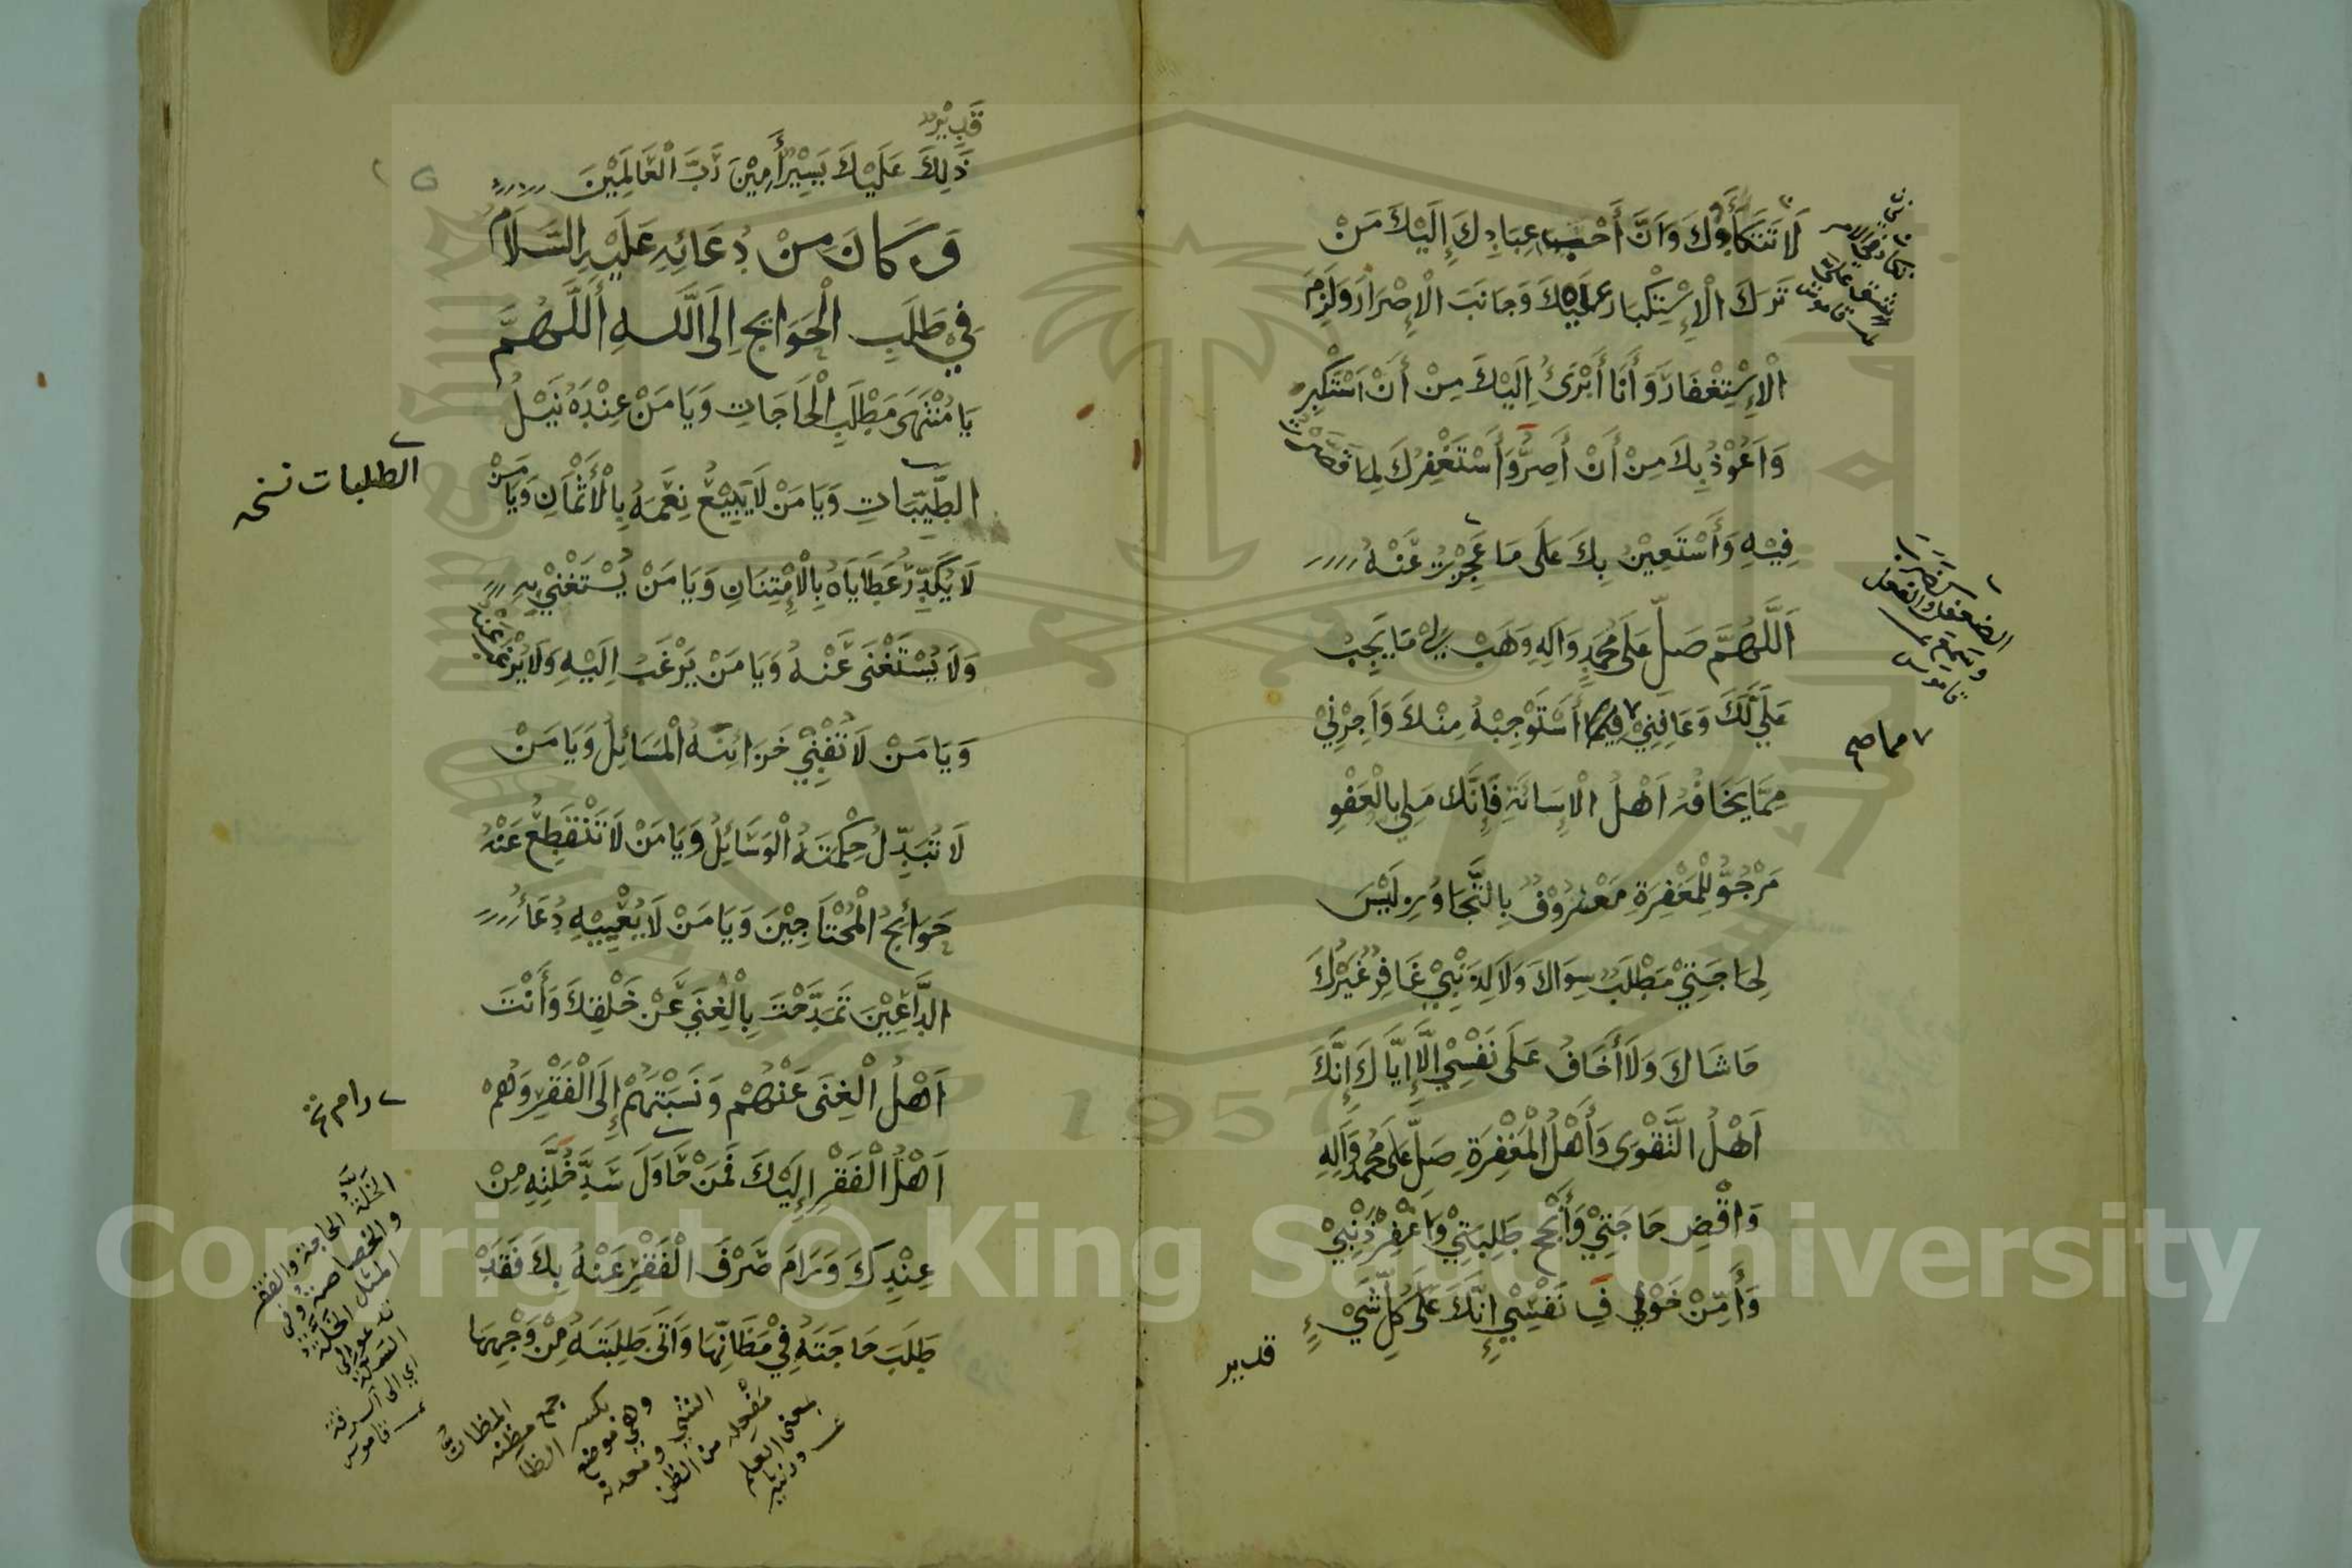 لَا تَتَكَأَّدُكَ وَاَنَّ أَحَبَّ عِبَادِكَ إِلَيْكَ مَنْ
تَرَكَ الْإِسْتِكْبَارَ عَلَيْكَ وَجَانَبَ الْإِصْرَارَ وَلَزِمَ
الْإِسْتِغْفَارَ وَأَنَا أَبْرَئُ اِلَيْكَ مِنْ أَنْ اَسْتَكْبِرَ
وَاَعُوْذُ بِكَ مِنْ أَنْ أَصِرَّ وَأَسْتَغْفِرُكَ لِمَا قَصَّرْتُ
فِيْهِ وَأَسْتَعِيْنُ بِكَ عَلَى مَا عَجِزْتُ عَنْهُ
اَللَّهُمَّ صَلِّ عَلَى مُحَمَّدٍ وَاٰلِهِ وَهَبْ لِيْ مَا يَجِبُ
عَلَيَّ لَكَ وَعَافِنِيْ فِيْمَا أَسْتَوْجِبُهُ مِنْكَ وَاَجِرْنِيْ
مِمَّا يَخَافُهُ اَهْلُ الْإِسَائَةِ فَإِنَّكَ مَلِي بِالْعَفْوِ
مَرْجُوٌّ لِلْمَغْفِرَةِ مَعْرُوْفٌ بِالتَّجَاوُزِ لَيْسَ
لِحَاجَتِيْ مَطْلَبٌ سِوَاكَ وَلَا لِذَنْبِيْ غَافِرٌ غَيْرُكَ
حَاشَاكَ وَلَا أَخَافُ عَلَى نَفْسِيْ إِلَّا إِيَّاكَ إِنَّكَ
اَهْلُ التَّقْوَى وَأَهْلُ الْمَغْفِرَةِ صَلِّ عَلَى مُحَمَّدٍ وَاٰلِهِ
وَاقْضِ حَاجَتِيْ وَأَنْجِحْ طَلِبَتِيْ وَاغْفِرْ ذَنْبِيْ
وَأَمِّنْ خَوْفَ نَفْسِيْ إِنَّكَ عَلَى كُلِّ شَيْءٍ
قدير
الضعف والفعل كضرب
وسمع
قاموس
مما صح
قَدِيْرٌ
ذٰلِكَ عَلَيْكَ يَسِيْرٌ أٰمِيْنَ رَبَّ الْعَالَمِيْنَ
وَكَانَ مِنْ دُعَائِهِ عَلَيْهِ السَّلَامُ
فِيْ طَلَبِ الْحَوَائِجِ اِلَى اللّٰهِ أَللّٰهُمَّ
يَا مُنْتَهَى مَطْلَبِ الْحَاجَاتِ وَيَا مَنْ عِنْدَهُ نَيْلُ
الطَّيِّبَاتِ وَيَا مَنْ لَا يَبِيْعُ نِعَمَهُ بِالْأَثْمَانِ وَيَا مَنْ
لَا يُكَدِّرُ عَطَايَاهُ بِالْإِمْتِنَانِ وَيَا مَنْ يُسْتَغْنٰى بِهِ
وَلَا يُسْتَغْنَى عَنْهُ وَيَا مَنْ يَرْغَبُ اِلَيْهِ وَلَا يُرْغَبُ عَنْهُ
وَيَا مَنْ لَا تُفْنِيْ خَزَائِنَهُ الْمَسَائِلُ وَيَا مَنْ
لَا تُبَدِّلُ حِكْمَتَهُ الْوَسَائِلُ وَيَا مَنْ لَا تَنْقَطِعُ عَنْهُ
حَوَائِجُ الْمُحْتَاجِيْنَ وَيَا مَنْ لَا يُعْيِيْهِ دُعَاءُ
الدَّاعِيْنَ تَمَدَّحْتَ بِالْغِنَى عَنْ خَلْقِكَ وَأَنْتَ
اَهْلُ الْغِنَى عَنْهُمْ وَنَسَبْتَهُمْ إِلَى الْفَقْرِ وَهُمْ
اَهْلُ الْفَقْرِ اِلَيْكَ فَمَنْ حَاوَلَ سَدَّ خَلَّتِهِ مِنْ
عِنْدِكَ وَرَامَ صَرْفَ الْفَقْرِ عَنْهُ بِكَ فَقَدْ
طَلَبَ حَاجَتَهُ فِيْ مَظَانِّهَا وَاَتَى طَلِبَتَهُ مِنْ وَجْهِهَا
الطلبات نسخه
رام
الخلة الحاجة والفقر
والخصاصة وفي
المثل الخلة
تدعو الى
السلة
اي الى السرقة
قاموس
المظان
جمع مظنه
بكسر الظا
وهي موضع
الشي ومعدنه
مفعله من الظن
بمعنى العلم
Copyright © King Saud University
1957